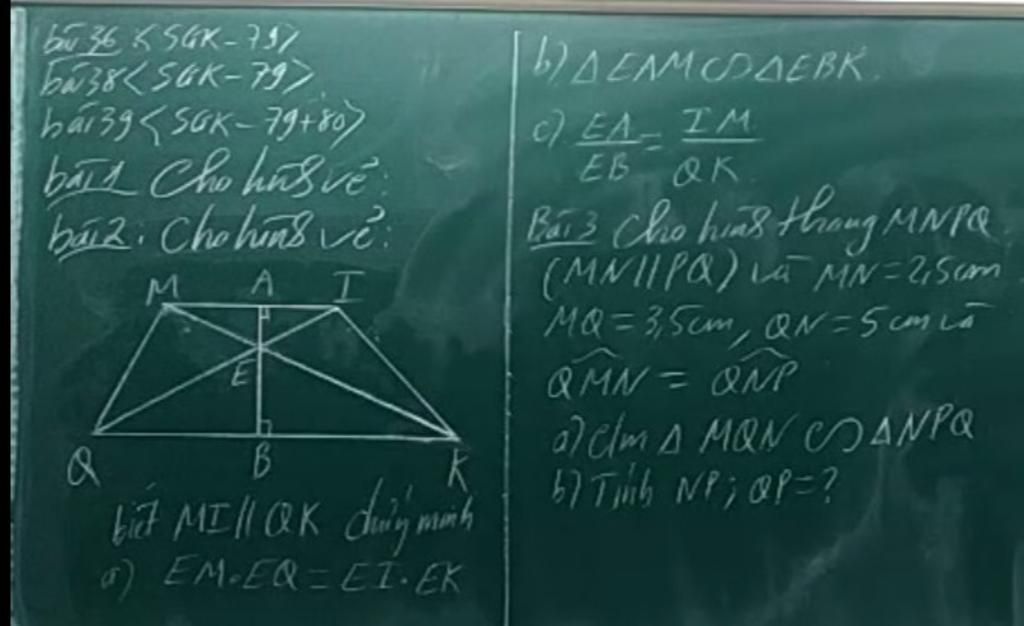 bài 36 <SGK-79>
bài 38 <SGK-79>
bài 39 <SGK-79+80>
bài 1 Cho hình vẽ:
bài 2: Cho hình vẽ:
M A I
E
Q B K
biết MI//QK chứng minh
a) EM.EQ = EI.EK
b) ΔEAM ∽ ΔEBK.
c) EA/EB = IM/QK
Bài 3 Cho hình thang MNPQ
(MN//PQ) và MN=2,5cm
MQ=3,5cm, QN=5cm và
\widehat{QMN} = \widehat{QNP}
a) C/m Δ MQN ∽ ΔNPQ
b) Tính NP; QP=?